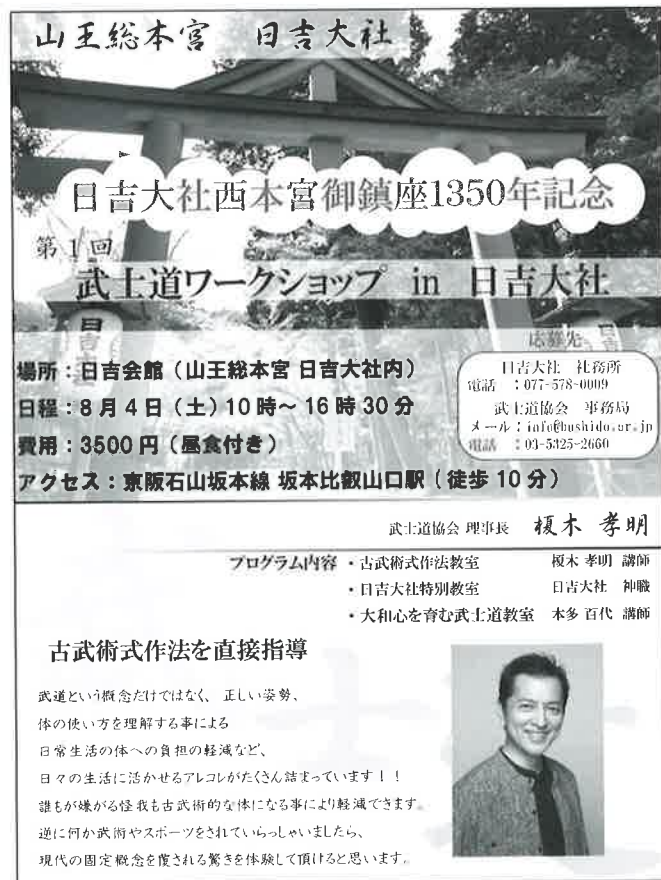 山王総本宮　日吉大社
日吉大社西本宮御鎮座1350年記念
第1回
武士道ワークショップ in 日吉大社
応募先
日吉大社 社務所
電話 ：077-578-0009
武士道協会 事務局
メール：info@bushido.or.jp
電話 ：03-5325-2660
場所：日吉会館（山王総本宮 日吉大社内）
日程：8月4日（土）10時～16時30分
費用：3500円（昼食付き）
アクセス：京阪石山坂本線 坂本比叡山口駅（徒歩10分）
武士道協会 理事長　榎木 孝明
プログラム内容 ・古武術式作法教室　榎木 孝明 講師
・日吉大社特別教室　日吉大社 神職
・大和心を育む武士道教室　本多 百代 講師
古武術式作法を直接指導
武道という概念だけではなく、正しい姿勢、
体の使い方を理解する事による
日常生活の体への負担の軽減など、
日々の生活に活かせるアレコレがたくさん詰まっています！！
誰もが嫌がる怪我も古武術的な体になる事により軽減できます。
逆に何か武術やスポーツをされていらっしゃいましたら、
現代の固定概念を覆される驚きを体験して頂けると思います。